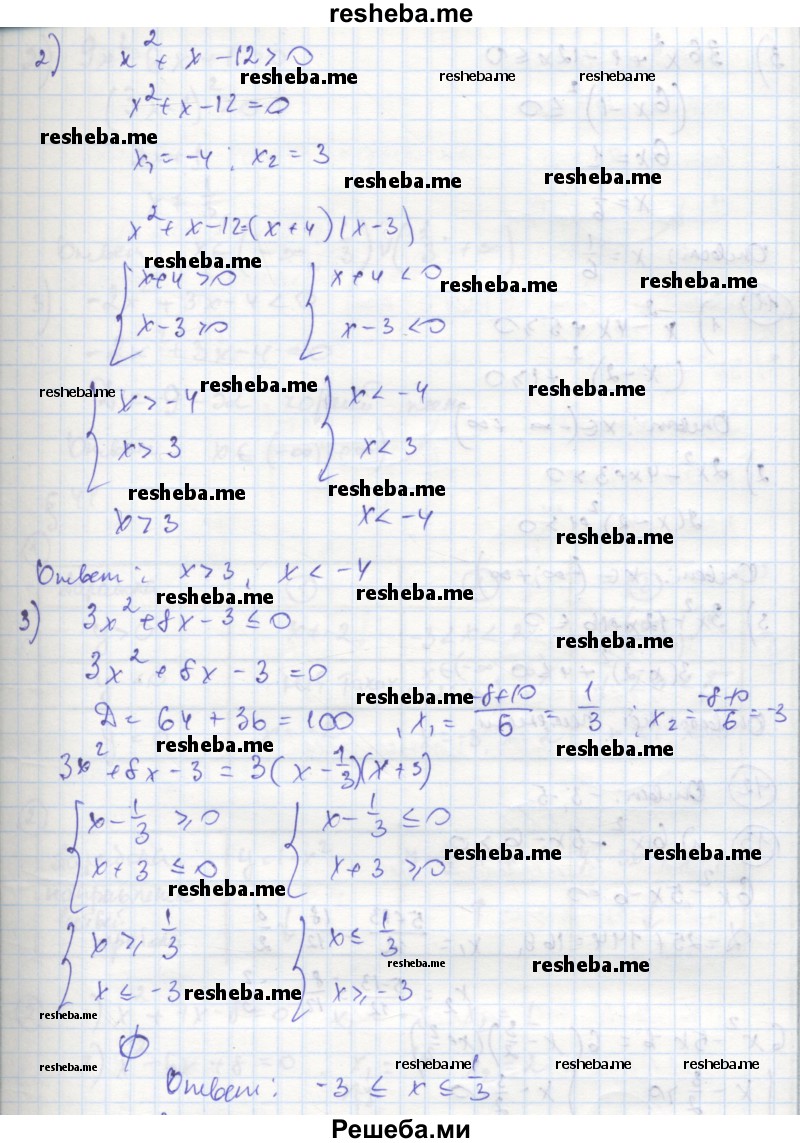 resheba.me
2) x² + x - 12 > 0
resheba.me resheba.me resheba.me
x² + x - 12 = 0
resheba.me
x₁ = -4 ; x₂ = 3
resheba.me resheba.me
x² + x - 12 = (x + 4)(x - 3)
resheba.me
x + 4 > 0 x + 4 < 0
resheba.me resheba.me
x - 3 > 0 x - 3 < 0
resheba.me resheba.me resheba.me
x > -4 x < -4
x > 3 x < 3
resheba.me resheba.me
x > 3 x < -4
resheba.me
Ответ: x > 3, x < -4
resheba.me resheba.me
3) 3x² + 8x - 3 ≤ 0
resheba.me
3x² + 8x - 3 = 0
resheba.me
D = 64 + 36 = 100, x₁ = (-8+10)/6 = 1/3 ; x₂ = (-8-10)/6 = -3
resheba.me resheba.me
3x² + 8x - 3 = 3(x - 1/3)(x + 3)
x - 1/3 ≥ 0 x - 1/3 ≤ 0
resheba.me resheba.me
x + 3 ≤ 0 x + 3 ≥ 0
resheba.me
x ≥ 1/3 x ≤ 1/3
resheba.me resheba.me
x ≤ -3 x ≥ -3
resheba.me
resheba.me
∅
resheba.me resheba.me resheba.me resheba.me
Ответ: -3 ≤ x ≤ 1/3
Решеба.ми